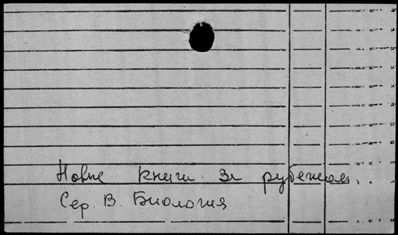 Новые книги за рубежом.
Сер. В. Биология